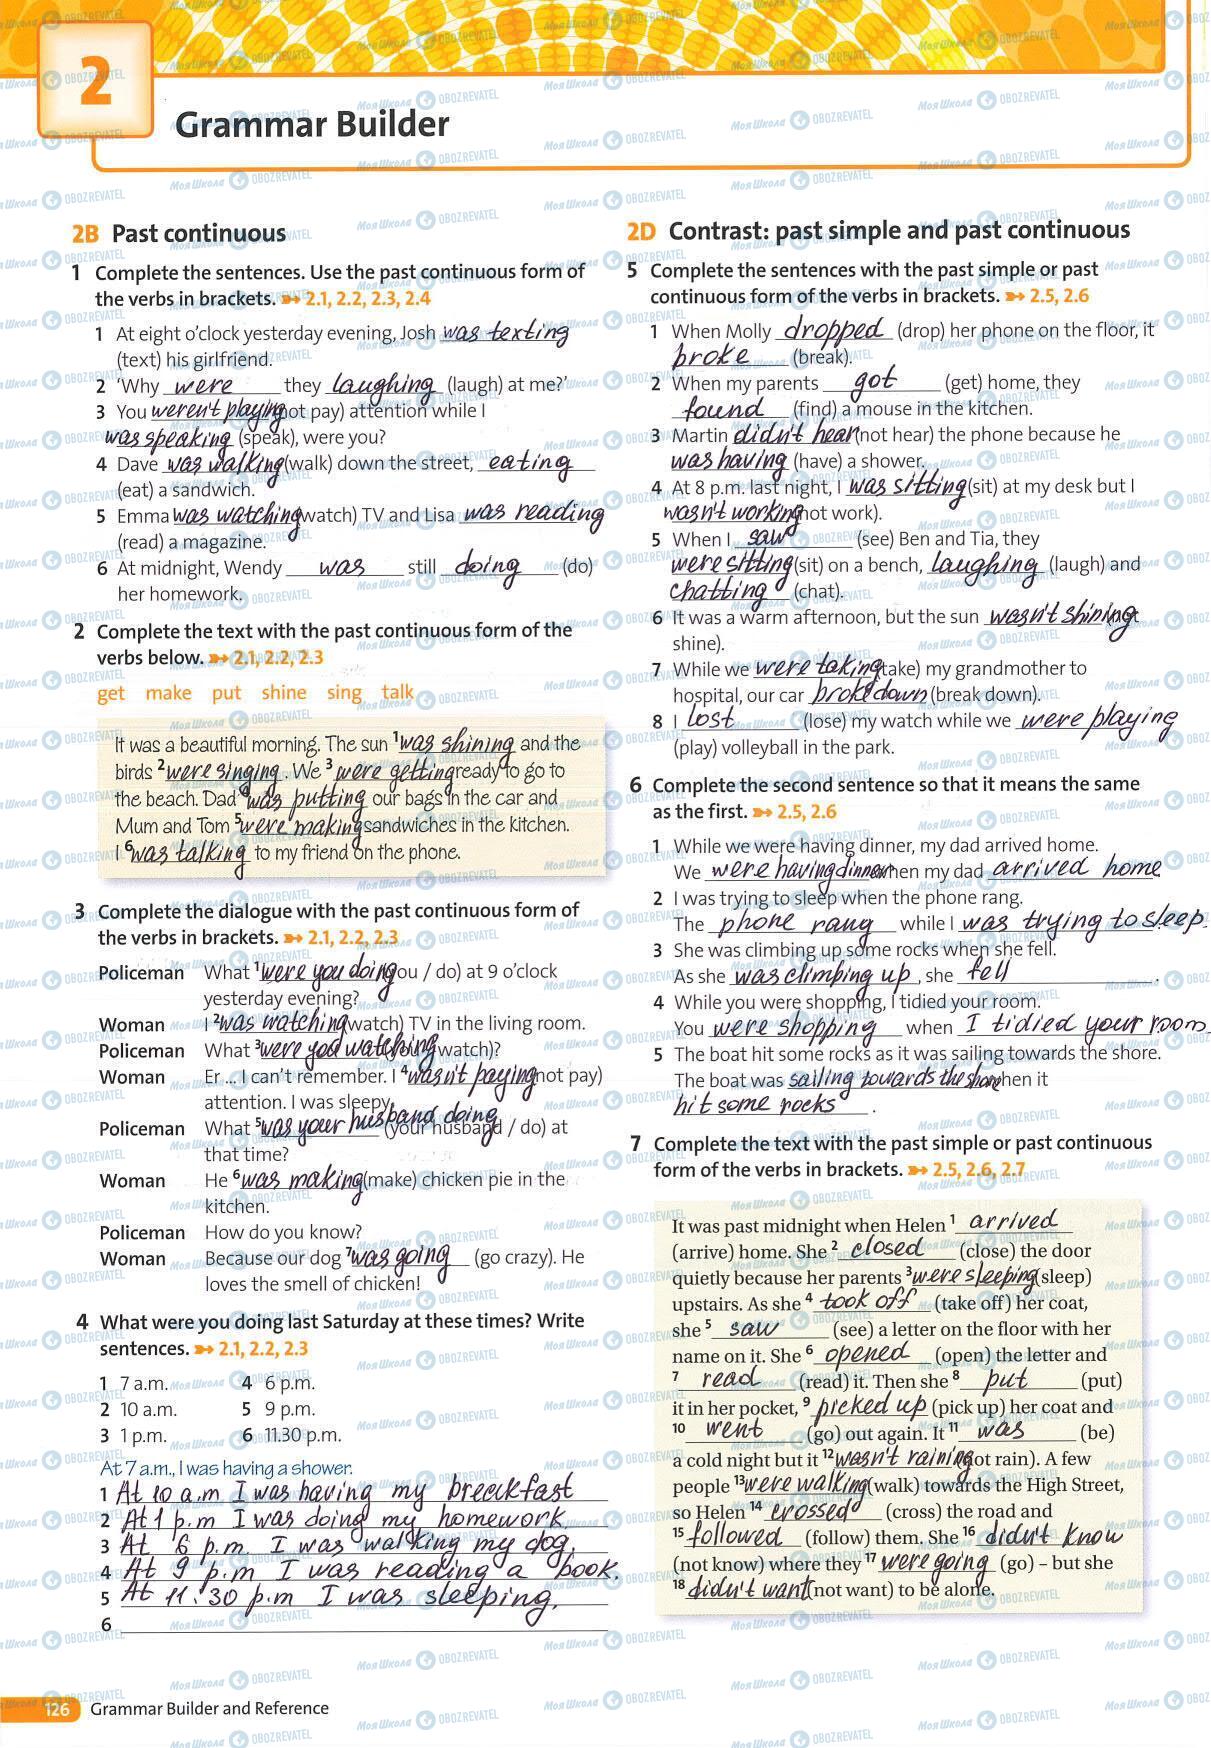 2
Grammar Builder
2B Past continuous
1 Complete the sentences. Use the past continuous form of
the verbs in brackets. 2.1, 2.2, 2.3, 2.4
1 At eight o'clock yesterday evening, Josh was texting
(text) his girlfriend.
2 'Why were they laughing (laugh) at me?'
3 You weren't playing not pay) attention while I
was speaking (speak), were you?
4 Dave was walking (walk) down the street, eating
(eat) a sandwich.
5 Emma was watching watch) TV and Lisa was reading
(read) a magazine.
6 At midnight, Wendy was still doing (do)
her homework.
2 Complete the text with the past continuous form of the
verbs below. 2.1, 2.2, 2.3
get make put shine sing talk
It was a beautiful morning. The sun 1 was shining and the
birds 2 were singing. We 3 were getting ready to go to
the beach. Dad 4 was putting our bags in the car and
Mum and Tom 5 were making sandwiches in the kitchen.
I 6 was talking to my friend on the phone.
3 Complete the dialogue with the past continuous form of
the verbs in brackets. 2.1, 2.2, 2.3
Policeman What 1 were you doing ou / do) at 9 o'clock
yesterday evening?
Woman I 2 was watching watch) TV in the living room.
Policeman What 3 were you watching (you / watch)?
Woman Er ... I can't remember. I 4 wasn't paying not pay)
attention. I was sleepy.
Policeman What 5 was your husband doing (your husband / do) at
that time?
Woman He 6 was making (make) chicken pie in the
kitchen.
Policeman How do you know?
Woman Because our dog 7 was going (go crazy). He
loves the smell of chicken!
4 What were you doing last Saturday at these times? Write
sentences. 2.1, 2.2, 2.3
1 7 a.m. 4 6 p.m.
2 10 a.m. 5 9 p.m.
3 1 p.m. 6 11.30 p.m.
At 7 a.m., I was having a shower.
1 At 10 a.m I was having my breakfast
2 At 1 p.m I was doing my homework.
3 At 6 p.m. I was walking my dog.
4 At 9 p.m I was reading a book.
5 At 11:30 p.m I was sleeping.
6
126 Grammar Builder and Reference
2D Contrast: past simple and past continuous
5 Complete the sentences with the past simple or past
continuous form of the verbs in brackets. 2.5, 2.6
1 When Molly dropped (drop) her phone on the floor, it
broke (break).
2 When my parents got (get) home, they
found (find) a mouse in the kitchen.
3 Martin didn't hear (not hear) the phone because he
was having (have) a shower.
4 At 8 p.m. last night, I was sitting (sit) at my desk but I
wasn't working not work).
5 When I saw (see) Ben and Tia, they
were sitting (sit) on a bench, laughing (laugh) and
chatting (chat).
6 It was a warm afternoon, but the sun wasn't shining (not
shine).
7 While we were taking take) my grandmother to
hospital, our car broke down (break down).
8 I lost (lose) my watch while we were playing
(play) volleyball in the park.
6 Complete the second sentence so that it means the same
as the first. 2.5, 2.6
1 While we were having dinner, my dad arrived home.
We were having dinner when my dad arrived home
2 I was trying to sleep when the phone rang.
The phone rang while I was trying to sleep.
3 She was climbing up some rocks when she fell.
As she was climbing up, she fell.
4 While you were shopping, I tidied your room.
You were shopping when I tidied your room.
5 The boat hit some rocks as it was sailing towards the shore.
The boat was sailing towards the shore when it
hit some rocks.
7 Complete the text with the past simple or past continuous
form of the verbs in brackets. 2.5, 2.6, 2.7
It was past midnight when Helen 1 arrived
(arrive) home. She 2 closed (close) the door
quietly because her parents 3 were sleeping (sleep)
upstairs. As she 4 took off (take off) her coat,
she 5 saw (see) a letter on the floor with her
name on it. She 6 opened (open) the letter and
7 read (read) it. Then she 8 put (put)
it in her pocket, 9 picked up (pick up) her coat and
10 went (go) out again. It 11 was (be)
a cold night but it 12 wasn't raining (not rain). A few
people 13 were walking (walk) towards the High Street,
so Helen 14 crossed (cross) the road and
15 followed (follow) them. She 16 didn't know
(not know) where they 17 were going (go) – but she
18 didn't want (not want) to be alone.
Моя Школа OBOZREVATEL